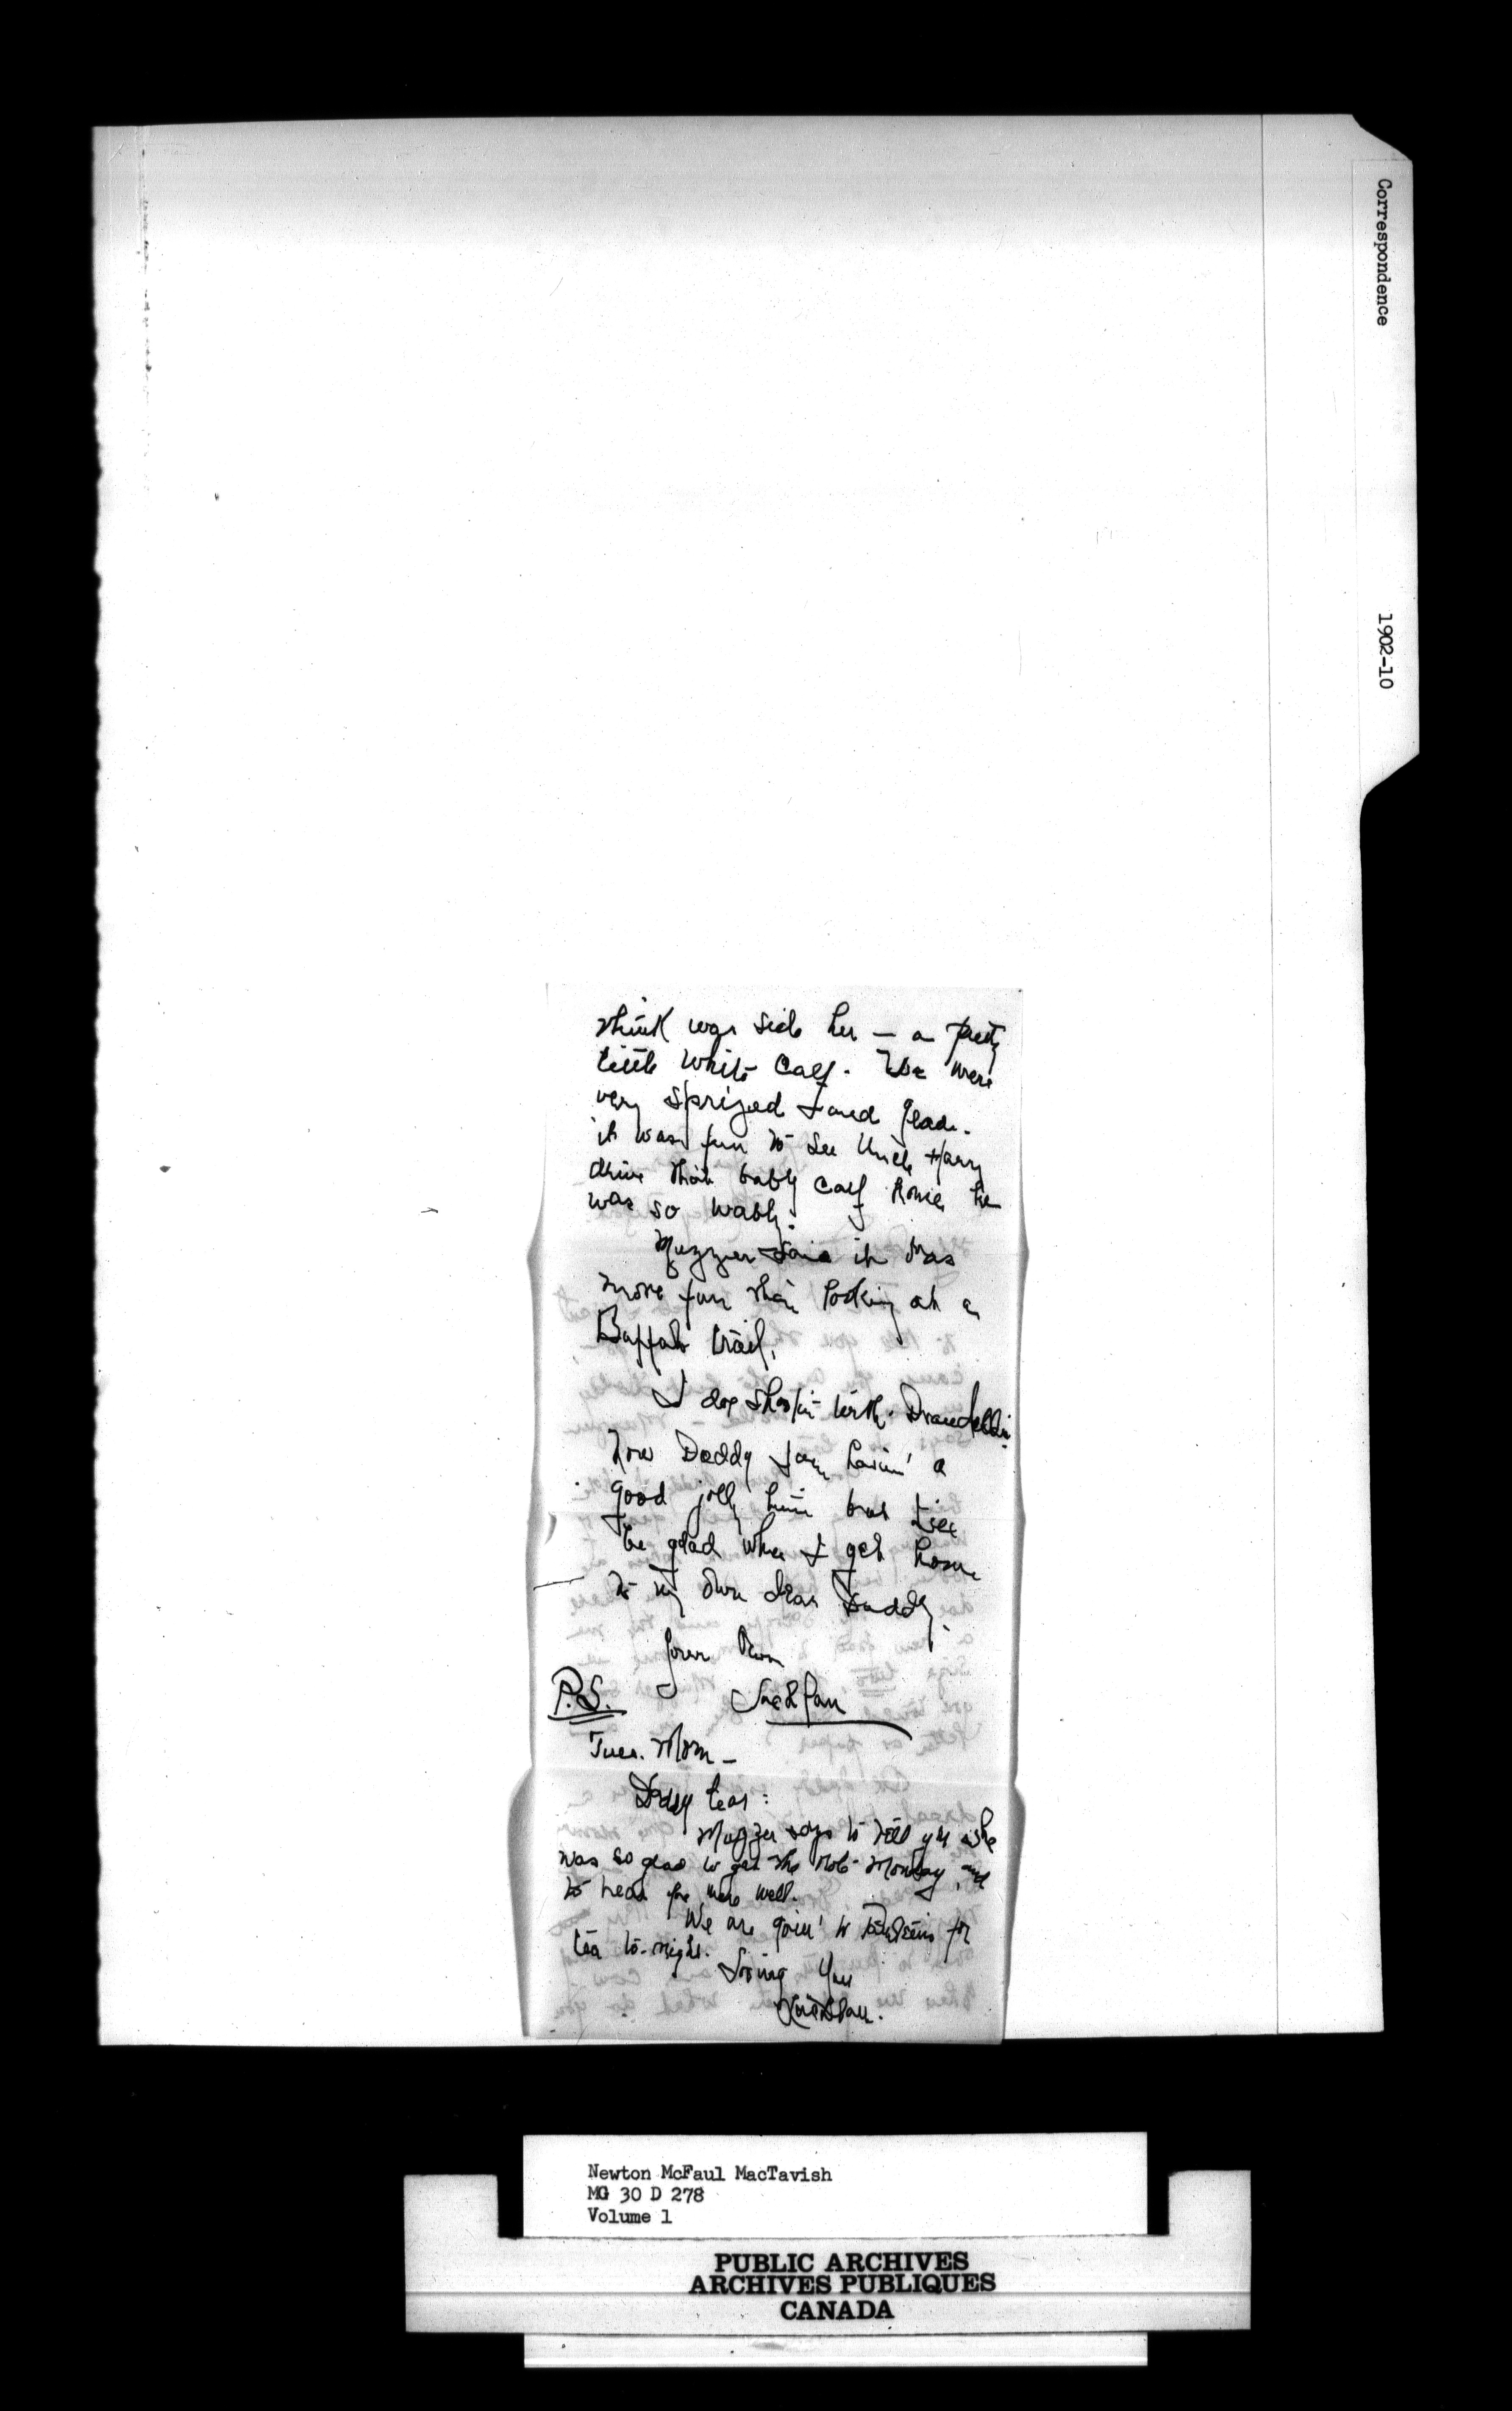 Correspondence
1902-10
think was side her — a pretty
little white calf. We were
very sprized and glad.
it was fun to see Uncle Harry
drive that baby calf home he
was so wably.
Muzzer said it was
more fun than looking at a
Buffalo trail.
I doe with
Now Daddy I am havin' a
good jolly time but I'll
be glad when I get home
to my own dear Daddy.
Your Own
P.S.
Tues. Morn —
Daddy tear:
Muzzer says to tell you she
was so glad to get the note Monday, and
to hear you were well.
We are goin' to for
tea to-night.
Loving You
Newton McFaul MacTavish
MG 30 D 278
Volume 1
PUBLIC ARCHIVES
ARCHIVES PUBLIQUES
CANADA